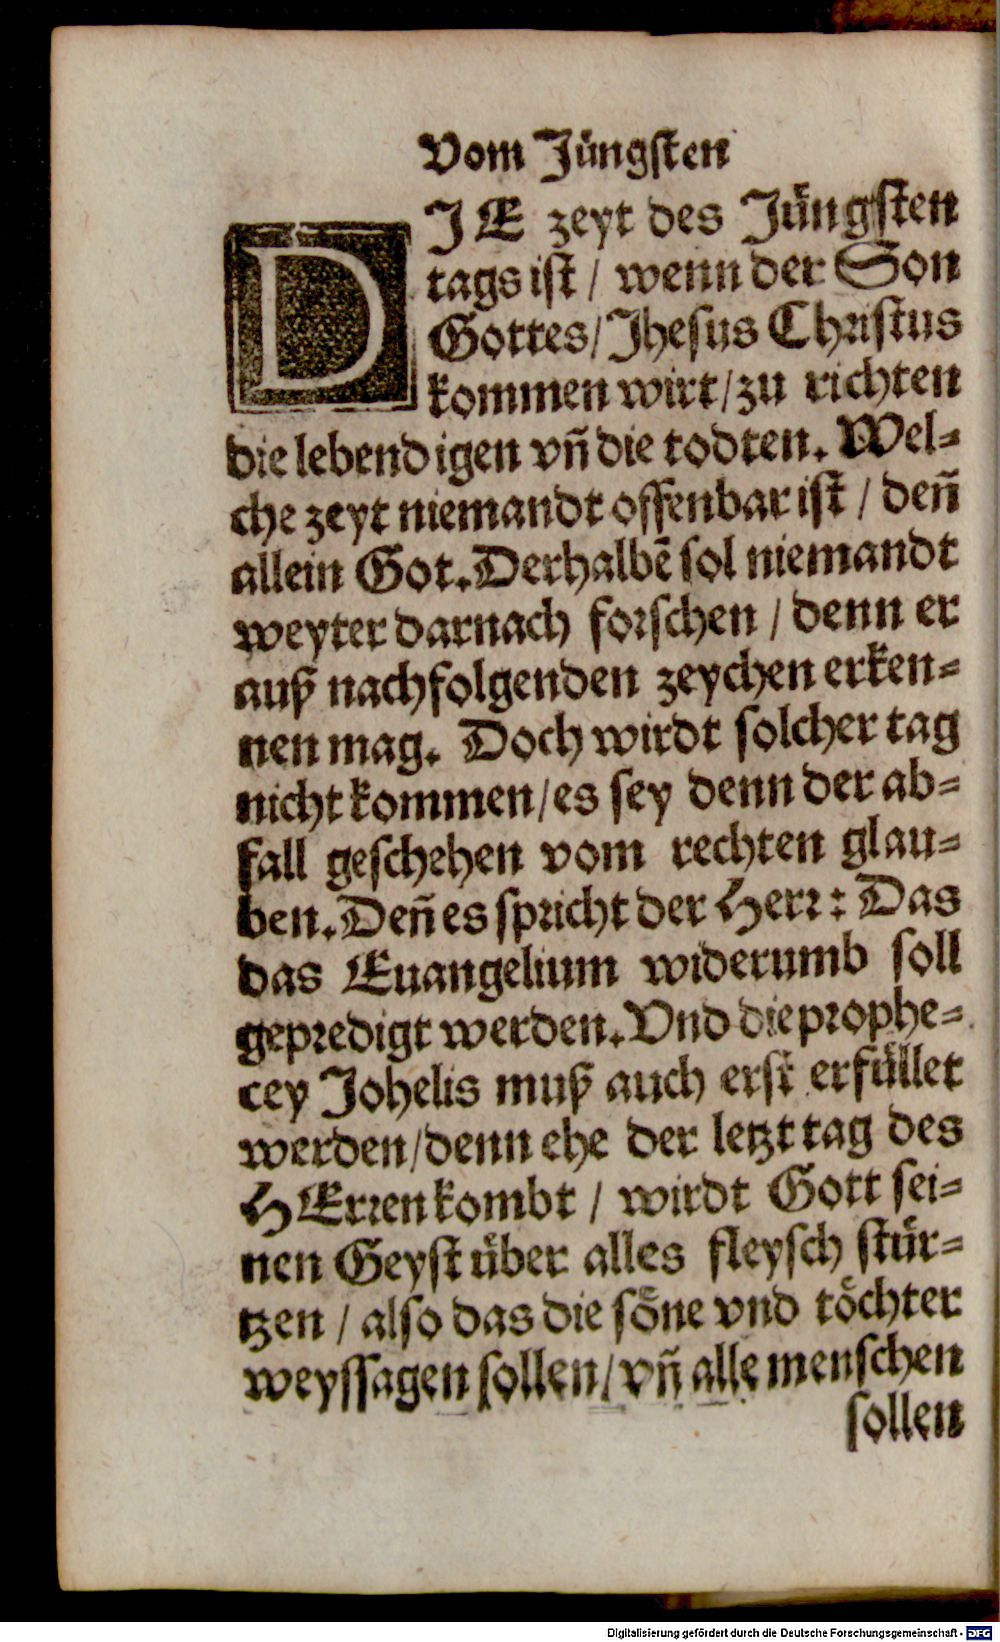 Vom Jüngsten
DJE zeyt des Jüngsten
tags ist / wenn der Son
Gottes / Jhesus Christus
kommen wirt / zu richten
die lebendigen vñ die todten. Wel=
che zeyt niemandt offenbar ist / deñ
allein Got. Derhalbẽ sol niemandt
weyter darnach forschen / denn er
auß nachfolgenden zeychen erken=
nen mag. Doch wirdt solcher tag
nicht kommen / es sey denn der ab=
fall geschehen vom rechten glau=
ben. Deñ es spricht der Herr: Das
das Euangelium widerumb soll
gepredigt werden. Vnd die prophe=
cey Johelis muß auch erst erfüllet
werden / denn ehe der letzt tag des
HErren kombt / wirdt Gott sei=
nen Geyst über alles fleysch stür=
tzen / also das die söne vnd töchter
weyssagen sollen / vñ alle menschen
sollen
Digitalisierung gefördert durch die Deutsche Forschungsgemeinschaft - DFG